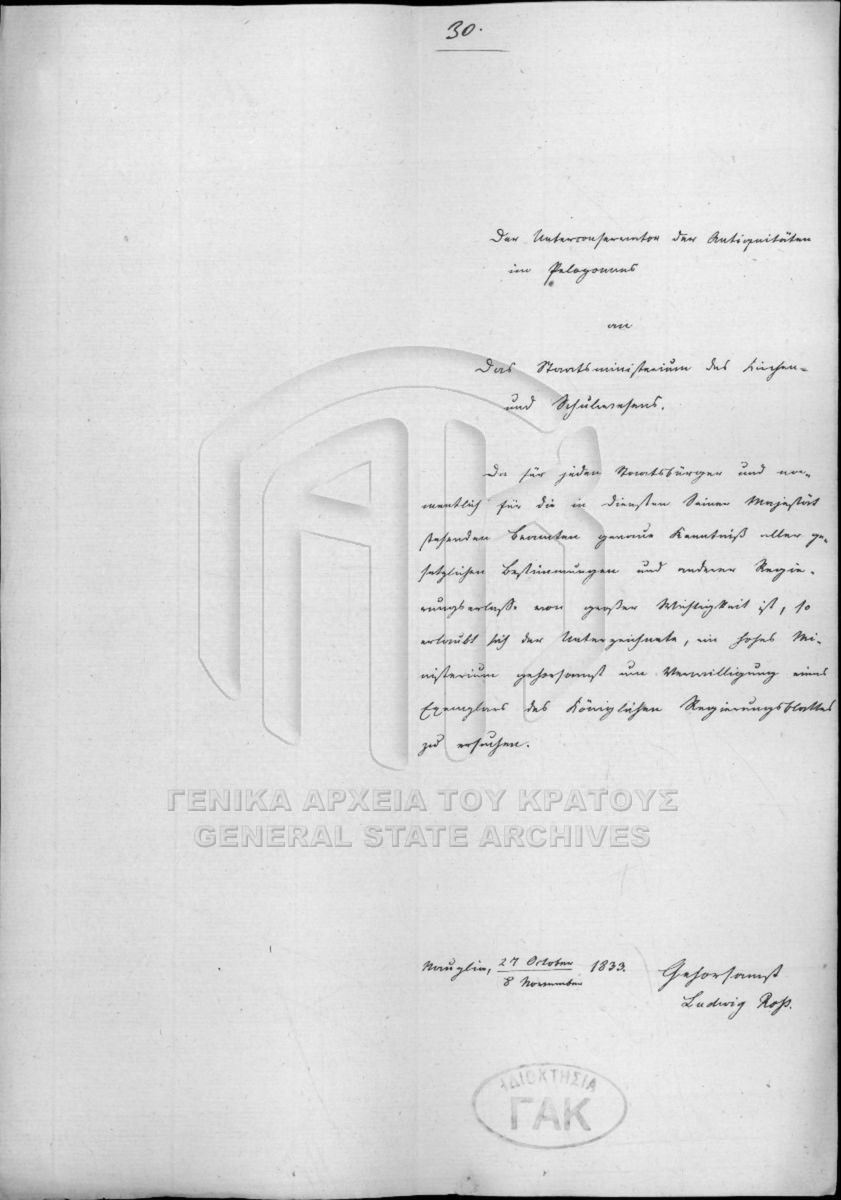 30.
Der Unterconservator der Antiquitäten
im Peloponnes
an
Das Staatsministerium des Kirchen-
und Schulwesens.
Da für jeden Staatsbürger und na-
mentlich für die in Diensten Seiner Majestät
stehenden Beamten genaue Kenntniß aller ge-
setzlichen Bestimmungen und anderer Regie-
rungserlasse von großer Wichtigkeit ist, so
erlaubt sich der Unterzeichnete, ein hohes Mi-
nisterium gehorsamst um Verwilligung eines
Exemplars des Königlichen Regierungsblattes
zu ersuchen.
ΓΕΝΙΚΑ ΑΡΧΕΙΑ ΤΟΥ ΚΡΑΤΟΥΣ
GENERAL STATE ARCHIVES
Nauplia, 27 October 1833. Gehorsamst
8 November
Ludwig Roß.
ΙΔΙΟΚΤΗΣΙΑ
ΓΑΚ